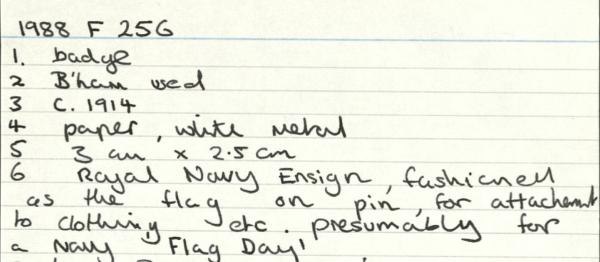 1988 F 256
1. badge
2 B'ham used
3 C. 1914
4 paper, white metal
5 3 cm x 2.5 cm
6 Royal Navy Ensign, fashioned
as the flag on pin, for attachment
to clothing etc. presumably for
a Navy 'Flag Day'